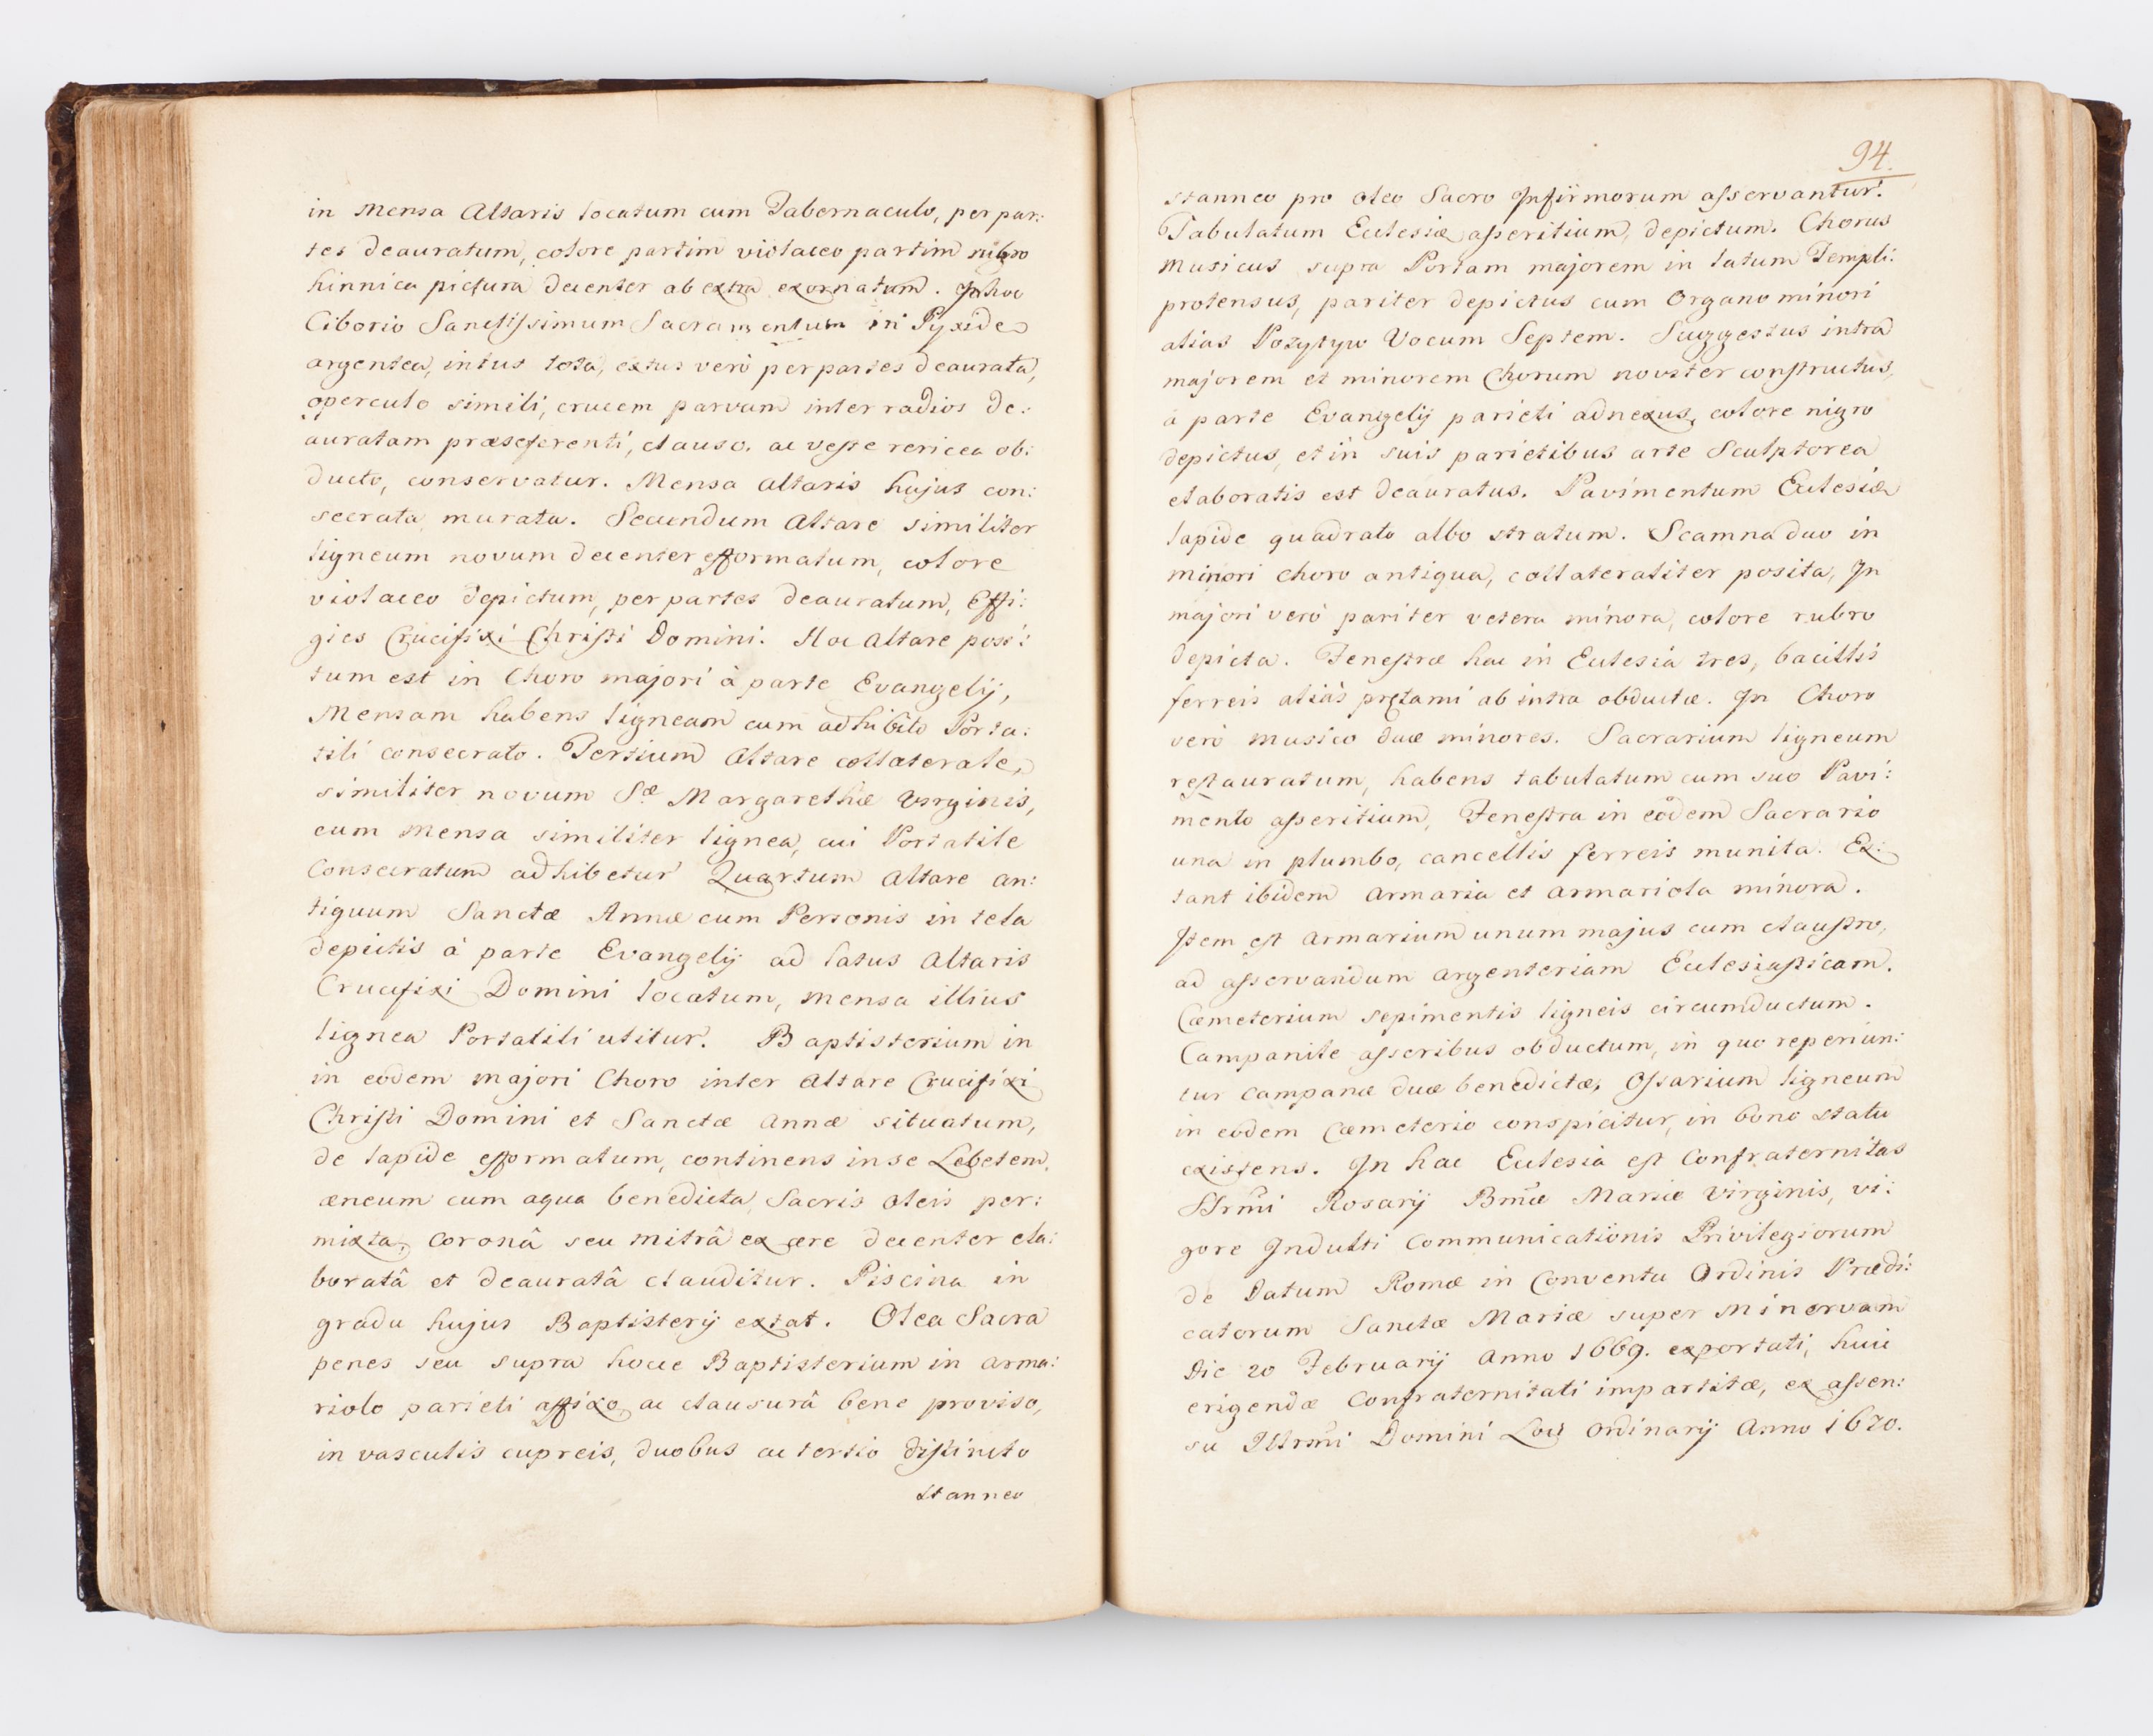 in Mensa Altaris locatum cum Tabernaculo, per par:
tes deauratum, colore partim violaceo partim rubro
hinnica pictura decenter ab extra exornatum. In hoc
Ciborio Sanctissimum Sacramentum in Pyxide
argentea, intus tota, extus verò per partes deaurata,
operculo simili, crucem parvam inter radios de:
auratam præseferenti, clauso, ac veste sericea ob:
ducto, conservatur. Mensa Altaris hujus con:
secrata murata. Secundum Altare similiter
ligneum novum decenter efformatum, colore
violaceo depictum, per partes deauratum, Effi:
gies Crucifixi Christi Domini. Hoc Altare posi:
tum est in Choro majori à parte Evangelij,
Mensam habens ligneam cum adhibito Porta:
tili consecrato. Tertium Altare collaterale,
similiter novum Sæ Margarethæ Virginis,
cum Mensa similiter lignea, cui Portatile
Consecratum adhibetur Quartum Altare an:
tiquum Sanctæ Annæ cum Personis in tela
depictis à parte Evangelij ad latus Altaris
Crucifixi Domini locatum, Mensa illius
lignea Portatili utitur. Baptisterium in
in eodem majori Choro inter Altare Crucifixi
Christi Domini et Sanctæ Annæ situatum,
de lapide efformatum, continens in se Lebetem
æneum cum aqua benedicta, Sacris Oleis per:
mixta, Coronâ seu mitrâ ex ære decenter ela:
boratâ et deauratâ clauditur. Piscina in
gradu hujus Baptisterij extat. Olea Sacra
penes seu supra hocce Baptisterium in arma:
riolo parieti affixo ac clausurâ bene proviso,
in vasculis cupreis, duobus ac tertio distincto
stanneo
94.
stanneo pro Oleo Sacro Infirmorum asservantur.
Tabulatum Ecclesiæ asseritium, depictum. Chorus
Musicus supra Portam majorem in latum Templi:
protensus, pariter depictus cum Organo minori
alias Pozytyw Vocum Septem. Suggestus intra
majorem et minorem Chorum noviter constructus,
à parte Evangelij parieti adnexus, colore nigro
depictus, et in suis parietibus arte Sculptorea
elaboratis est deauratus. Pavimentum Ecclesiæ
lapide quadrato albo stratum. Scamna duo in
minori choro antiqua, collateraliter posita, In
majori verò pariter vetera minora, colore rubro
depicta. Fenestræ hac in Eclesia tres, bacillis
ferreis aliàs prętami ab intra obductæ. In Choro
verò musico duæ minores. Sacrarium ligneum
restauratum, habens tabulatum cum suo Pavi:
mento asseritium, Fenestra in eodem Sacrario
una in plumbo, cancellis ferreis munita. Ex:
tant ibidem Armaria et armariola minora.
Item est Armarium unum majus cum claustro,
ad asservandum argenteriam Ecclesiasticam.
Cæmeterium sepimentis ligneis circumductum.
Campanile asseribus obductum, in quo reperiun:
tur Campanæ duæ benedictæ, Ossarium ligneum
in eodem Cæmeterio conspicitur, in bono statu
existens. In hac Ecclesia est Confraternitas
SSrmi Rosarij Bmæ Mariæ Virginis, vi:
gore Indulti Communicationis Privilegiorum
de Datum Romæ in Conventu Ordinis Prædi:
catorum Sanctæ Mariæ super Minervam
Die 20 Februarij Anno 1669. exportati, huic
erigendæ Confraternitati impartitæ, ex assen:
su Illrmi Domini Loci Ordinarij Anno 1670.